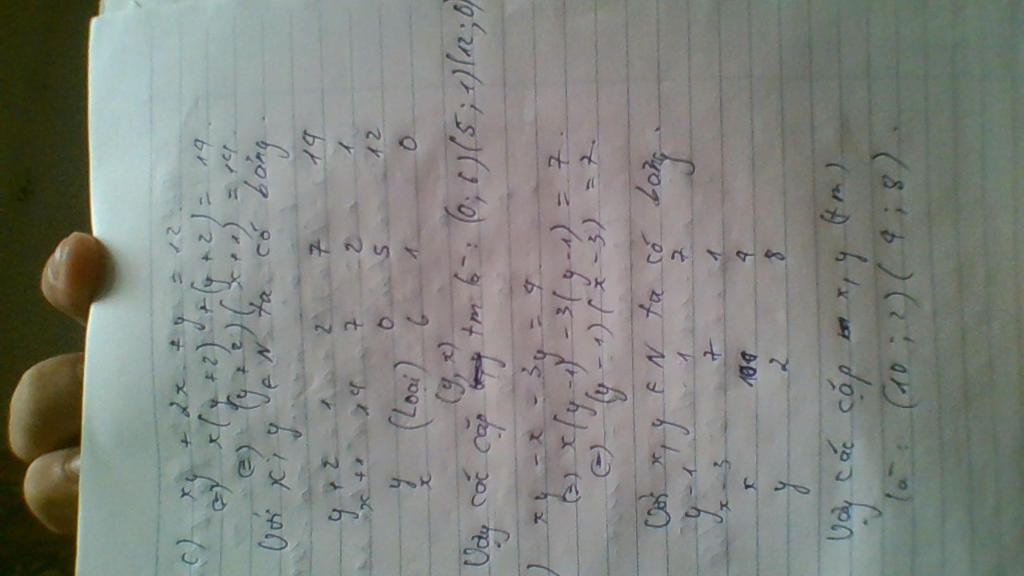 c) xy + 2x + y = 12
(=) x(y+2) + (y+2) = 14
(=) (y+2)(x+1) = 14
Với x; y ∈ N ta có bảng
y+2 1 2 7 14
x+1 14 7 2 1
y (Loại) 0 5 12
x 6 1 0
(y, x)
Vậy các cặp tm là: (0; 6) (5; 1) (12; 0)
) xy - x - 3y = 4
(=) x(y-1) - 3(y-1) = 7
(=) (y-1)(x-3) = 7
Với x, y ∈ N ta có bảng
y-1 1 7
x-3 7 1
x 10 4
y 2 8
Vậy các cặp x, y (tm)
là: (10; 2) (4; 8).